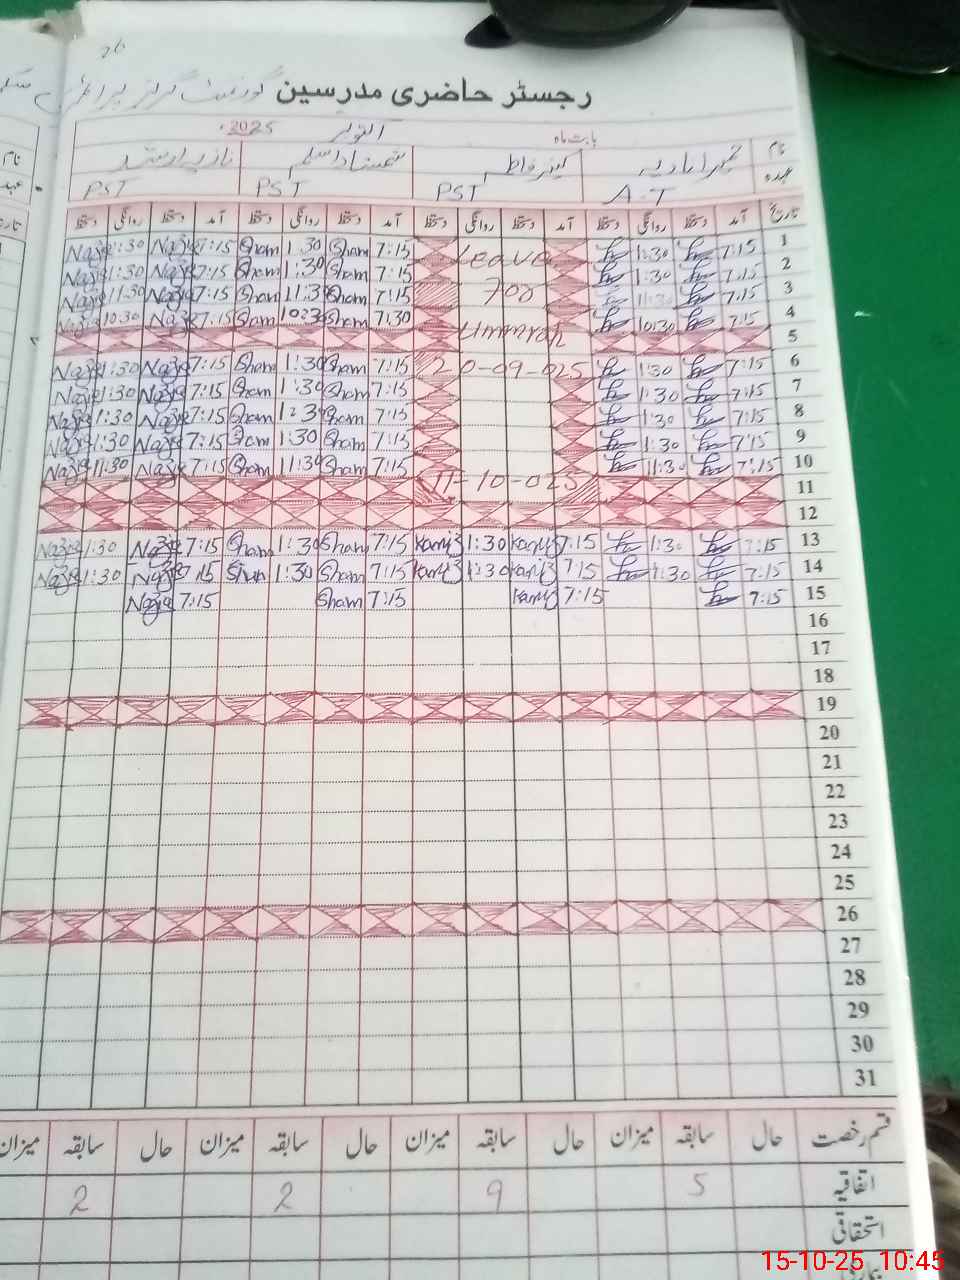 26
رجسٹر حاضری مدرسین گورنمنٹ گرلز پرائمری
بابت ماہ اکتوبر 2025ء
نام حمیرا نادیہ کنیز فاطمہ شمشاد اسلم نازیہ ارشد
عہدہ A.T PST PST PST
تاریخ آمد دستخط روانگی دستخط آمد دستخط روانگی دستخط آمد دستخط روانگی دستخط آمد دستخط روانگی دستخط
1 7:15 1:30 7:15 Sham 1:30 Sham 7:15 Nazia 1:30 Nazia
Leave
2 7:15 1:30 7:15 Sham 1:30 Sham 7:15 Nazia 1:30 Nazia
3 7:15 11:30 for 7:15 Sham 11:3 Sham 7:15 Nazia 11:30 Nazia
4 7:15 10:30 7:30 Sham 10:3 Sham 7:15 Nazia 10:30 Nazia
5 Ummrah
6 7:15 1:30 20-09-025 7:15 Sham 1:30 Sham 7:15 Nazia 1:30 Nazia
7 7:15 1:30 7:15 Sham 1:30 Sham 7:15 Nazia 1:30 Nazia
8 7:15 1:30 7:15 Sham 1:3 Sham 7:15 Nazia 1:30 Nazia
9 7:15 1:30 7:15 Sham 1:30 Sham 7:15 Nazia 1:30 Nazia
10 7:15 11:30 7:15 Sham 11:30 Sham 7:15 Nazia 11:30 Nazia
11 11-10-025
12
13 7:15 1:30 7:15 Kaniz 1:30 Kaniz 7:15 Sham 1:30 Sham 7:15 Nazia 1:30 Nazia
14 7:15 1:30 7:15 Kaniz 1:30 Kaniz 7:15 Sham 1:30 Sham 7:15 Nazia 1:30 Nazia
15 7:15 7:15 Kaniz 7:15 Sham 7:15 Nazia
16
17
18
19
20
21
22
23
24
25
26
27
28
29
30
31
قسم رخصت حال سابقہ میزان حال سابقہ میزان حال سابقہ میزان حال سابقہ میزان
اتفاقیہ 5 9 2 2
استحقاقی
15-10-25 10:45